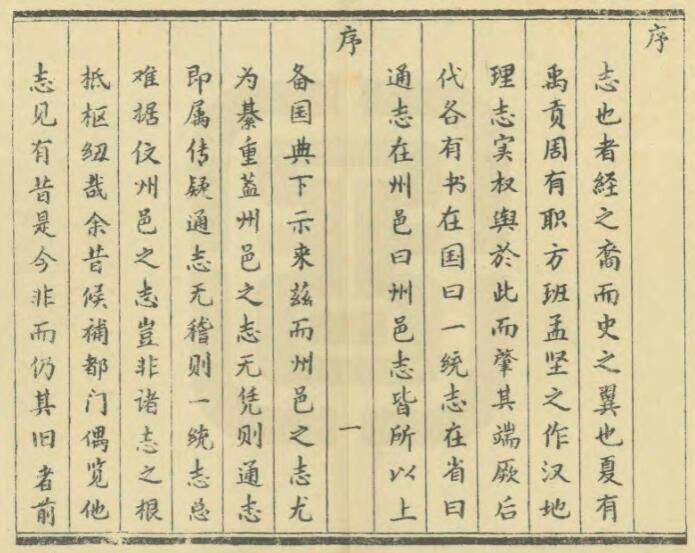 序
志也者経之裔而史之翼也夏有
禹贡周有职方班孟坚之作汉地
理志实权舆於此而肇其端厥后
代各有书在国曰一统志在省曰
通志在州邑曰州邑志皆所以上
序 一
备国典下示来兹而州邑之志尤
为綦重盖州邑之志无凭则通志
即属传疑通志无稽则一统志总
难据仗州邑之志岂非诸志之根
抵枢纽哉余昔候補都门偶览他
志见有昔是今非而仍其旧者前